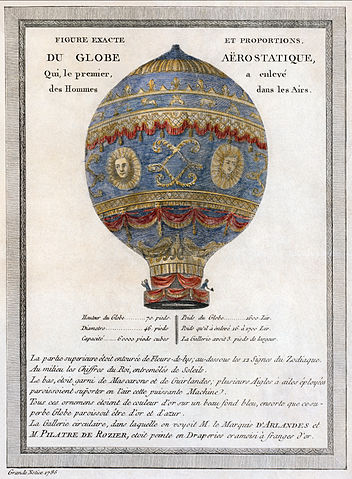 FIGURE EXACTE ET PROPORTIONS,
DU GLOBE AËROSTATIQUE,
Qui, le premier, a enlevé
des Hommes dans les Airs.
Hauteur du Globe ........ 70 pieds
Diametre ........ 46 pieds
Capacité ........ 60000 pieds cubes
Poids du Globe ........ 1600 Liv.
Poids qu'il a enlevé 16 à 1700 Liv.
La Gallerie avoit 3 pieds de largeur.
La partie superieure étoit entourée de Fleurs-de-lys; au-dessous les 12 Signes du Zodiaque.
Au milieu les Chiffres du Roi, entremêlés de Soleils.
Le bas, étoit garni de Mascarons et de Guirlandes; plusieurs Aigles a ailes éployées
paroissoient suporter en l'air cette puissante Machine.
Tous ces ornemens étoient de couleur d'or sur un beau fond bleu, ensorte que ce su-
perbe Globe paroissoit être d'or et d'azur.
La Gallerie circulaire, dans laquelle on voyoit M. le Marquis D'ARLANDES et
M. PILATRE DE ROZIER, étoit peinte en Draperies cramoisi à franges d'or.
1786